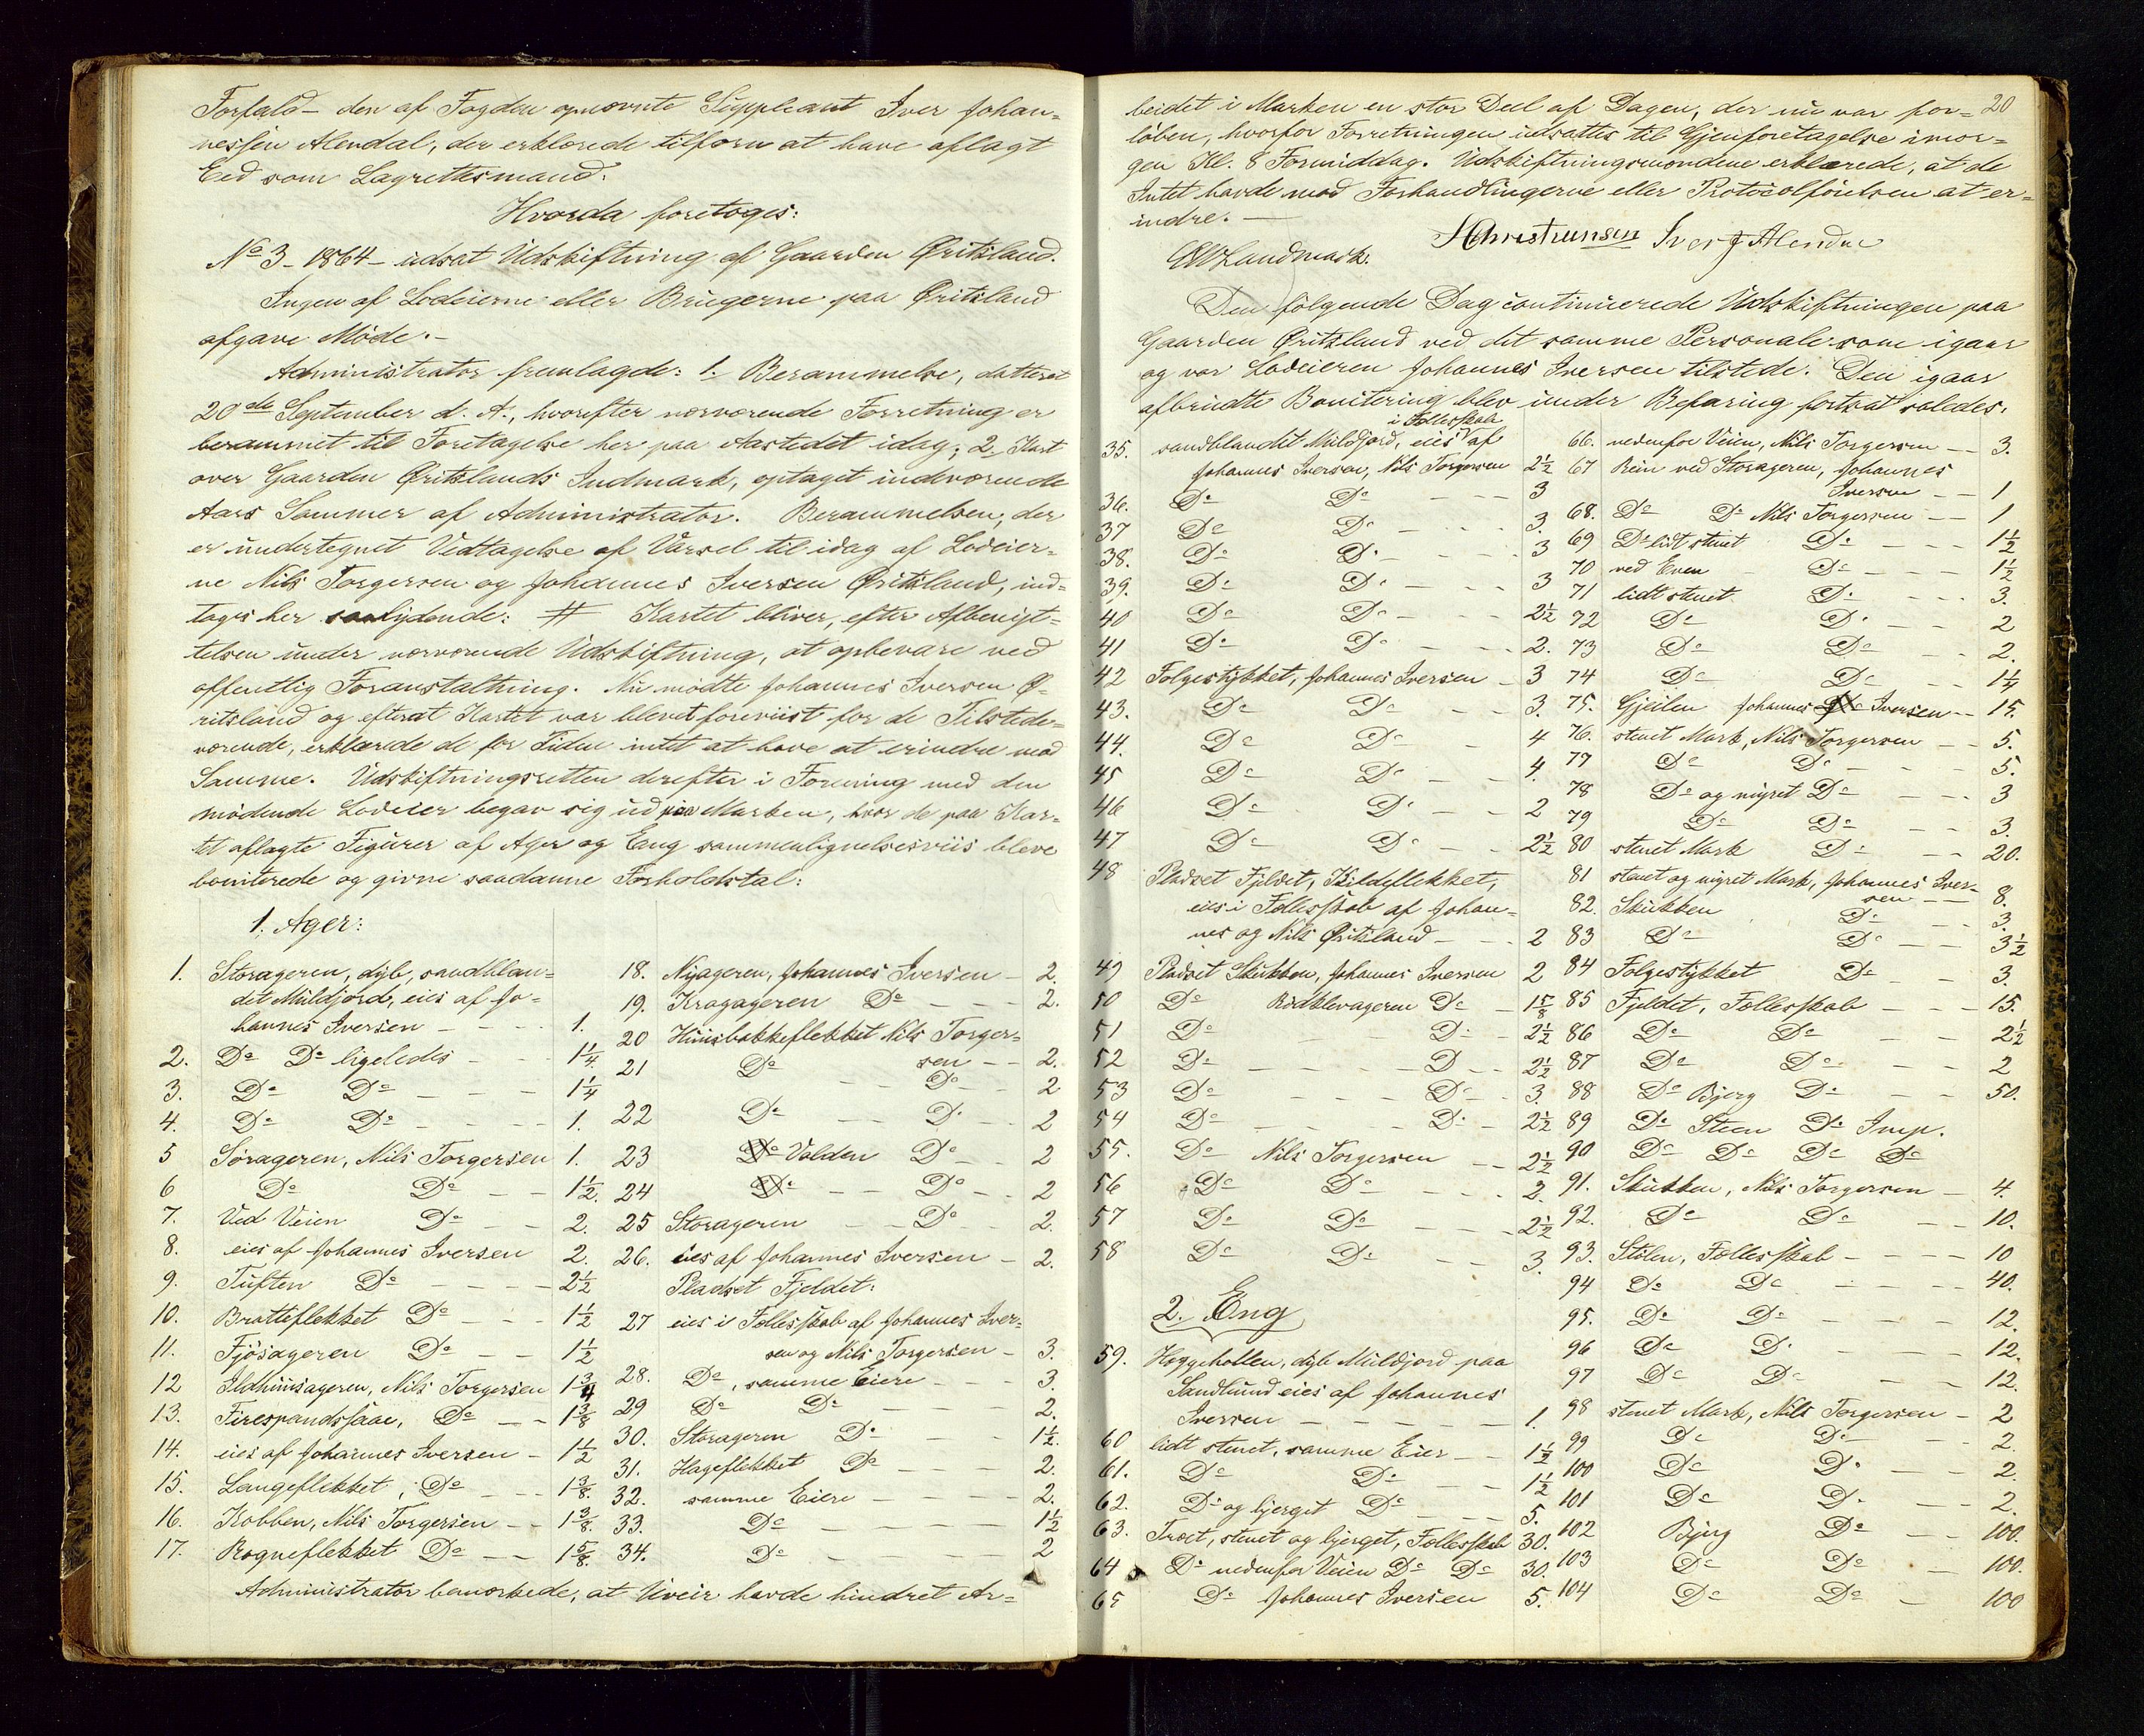 Forfald – den af Fogden opnævnte Suppleant Iver Johan=
nessen Alendal, der erklærede tilforn at have aflagt
Eed som Lagrettesmand.
Hvorda foretoges:
No 3 – 1864 – udsat Udskiftning af Gaarden Øritsland.
Ingen af Lodeierne eller Brugerne paa Øritsland
afgave Møde. –
Administrator fremlagde: 1. Berammelse, datteret
20de September d. A., hvorefter nærværende Forretning er
berammet til Foretagelse her paa Aastedet idag; 2. Kart
over Gaarden Øritslands Indmark, optaget indværende
Aars Sommer af Administrator. Berammelsen, der
er undertegnet Vedtagelse af Varsel til idag af Lodeier=
ne Nils Torgersen og Johannes Iversen Øritsland, ind=
tages her saalydende: # Kartet bliver, efter Afbenyt=
telsen under nærværende Udskiftning, at opbevare ved
offentlig Foranstaltning. Nu mødte Johannes Iversen Ø=
ritsland og efterat Kartet var blevet foreviist for de Tilstede=
værende, erklærede de for Tiden intet at have at erindre mod
Samme. Udskiftningsretten derefter i Forening med den
mødende Lodeier begav sig ud paa Marken, hvor de paa Kar=
tet aflagte Figurer af Ager og Eng sammenlignelsesviis bleve
boniterede og givne saadanne Forholdstal:
1. Ager:
1. Storageren, dyb, sandblan=
det Muldjord, eies af Jo=
hannes Iversen – – – 1.
2. Do Do ligeledes – – 1 1/4.
3. Do Do – – – 1 1/4
4. Do Do – – – – 1.
5 Sørageren, Nils Torgersen 1.
6 Do Do – – 1 1/2.
7. Ved Veien Do – – 2.
8. eies af Johannes Iversen 2.
9. Tuften Do – – – – 2 1/2
10. Bratteflekket Do – – – 1 1/2
11. Fjøsageren Do – – 1 1/2
12 Ildhuusageren, Nils Torgersen 1 3/4
13. Firespandssaae, Do – – 1 3/8
14. eies af Johannes Iversen – 1 1/2
15. Langeflekket, Do – – – 1 3/8.
16. Kobben, Nils Torgersen – – 1 3/8.
17. Rogneflekket Do – – 1 5/8.
18. Nyageren, Johannes Iversen – 2.
19. Kragageren Do – – – 2.
20 Huusbakkeflekket Nils Torger=
sen – – 2.
21 Do – – Do – – 2
22 Do – – D. – – 2
23 Do Volden Do – – 2
24 Do – – Do – – 2
25 Storageren – – Do – 2.
26. eies af Johannes Iversen – 2.
Pladset Fjeldet:
27 eies i Fællesskab af Johannes Iver=
sen og Nils Torgersen – 3.
28. Do, samme Eiere – – – 3.
29 Do Do – – – – 2.
30. Storageren Do – – – 1 1/2.
31. Hageflekket Do – – – 2.
32. samme Eiere – – – – 2.
33. Do – – – – – 1 1/2
34. Do – – – – – 2
Administrator bemærkede, at Uveir havde hindret Ar=
20
beidet i Marken en stor Deel af Dagen, der nu var for=
løben, hvorfor Forretningen udsattes til Gjenforetagelse imor=
gen Kl. 8 Formiddag. Udskiftningsmændene erklærede, at de
Intet havde mod Forhandlingerne eller Protocolførelsen at er=
indre. –
HChristensen Iver J Alendal
Landmark.
Den følgende Dag continuerede Udskiftningen paa
Gaarden Øritsland ved det samme Personale som igaar
og var Lodeieren Johannes Iversen tilstede. Den igaar
afbrudte Bonitering blev under Befaring fortsat saledes.
i Fællesskab
35. sandblandet Muldjord, eies af
Johannes Iversen, Nils Torgersen 2 1/2
36. Do Do – – – 3
37 Do Do – – – 3.
38. Do D. – – – 3
39. Do Do – – – 3
40 Do Do – – – 2 1/2
41 Do Do – – – 2.
42 Følgestykket, Johannes Iversen – 3
43. Do Do – – 3.
44. Do Do – 4
45 Do Do – – 4.
46 Do D. – – 2
47 Do Do – – 2 1/2
48 Pladset Fjeldet, Kildeflekket,
eies i Fællesskab af Johan=
nes og Nils Øritsland – – 2
49 Pladset Skukken, Johannes Iversen 2
50 Do Rødklevageren Do – 1 5/8
51 Do Do – 2 1/2
52 Do – – – – D – – 2 1/2
53 Do – – – Do – 3.
54 Do – – – – Do – 2 1/2
55. Do Nils Torgersen – – 2 1/2
56 Do Do – – – 2.
57 Do Do – – – 2 1/2
58 Do Do – – 3.
2. Eng
59. Høggehollen, dyb Muldjord paa
Sandbund eies af Johannes
Iversen – – – – – 1.
60 lidt stenet, samme Eier – – 1 1/2
61. Do Do – – 1 1/2
62. Do og bjerget Do – – – 5.
63. Træet, stenet og bjerget, Fællesskab 30.
64 Do nedenfor Veien Do Do 30.
65 Do Johannes Iversen 5.
66. nedenfor Veien, Nils Torgersen – – 3.
67 Rein ved Storageren, Johannes
Iversen – – 1
68. Do Do Nils Torgersen – – 1
69 Do lidt stenet Do – – – 1 1/2
70 ved Even Do – – – 1 1/2
71 lidt stenet Do – – – 3.
72 Do D. – – 2
73 Do Do – – 2.
74 Do Do – – 1 1/4
75. Gjeilen Johannes Iversen – – 15.
76. stenet Mark, Nils Torgersen – – 5.
77 Do Do – – – 5.
78 Do og myret Do – – – 3
79 Do Do – – 3.
80 stenet Mark Do – – 20.
81 stenet og myret Mark, Johannes Iver=
sen – – 8.
82. Skukken Do – – 3.
83 Do Do – – 3 1/2
84 Følgestykket Do – – 3.
85 Fjeldet, Fællesskab – – – 15.
86 Do Do – – 2 1/2
87 Do Do – – – 2
88 Do Bjerg Do – – 50.
89 Do Steen Do Imp.
90 Do Do Do Do
91. Skukken, Nils Torgersen – 4.
92. Do Do – – 10.
93. Stølen, Fællesskab – – – 10
94 Do Do – – – 40.
95. Do Do – – – – 12.
96 Do D. – – – – 12.
97 Do Do – – – 12.
98 stenet Mark, Nils Torgersen – 2
99 Do Do – – 2.
100 Do D. – – 2.
101 Do D. – – 2.
102 Bjerg Do – – 100.
103 Do Do – 100.
104 Do Do – 100